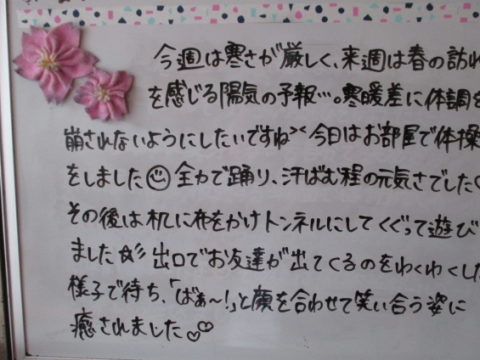 今週は寒さが厳しく、来週は春の訪れ
を感じる陽気の予報…。寒暖差に体調を
崩されないようにしたいですね 今日はお部屋で体操
をしました 全力で踊り、汗ばむ程の元気さでした
その後は机に布をかけトンネルにしてくぐって遊び
ました 出口でお友達が出てくるのをわくわくした
様子で待ち、「ばぁ〜!」と顔を合わせて笑い合う姿に
癒されました